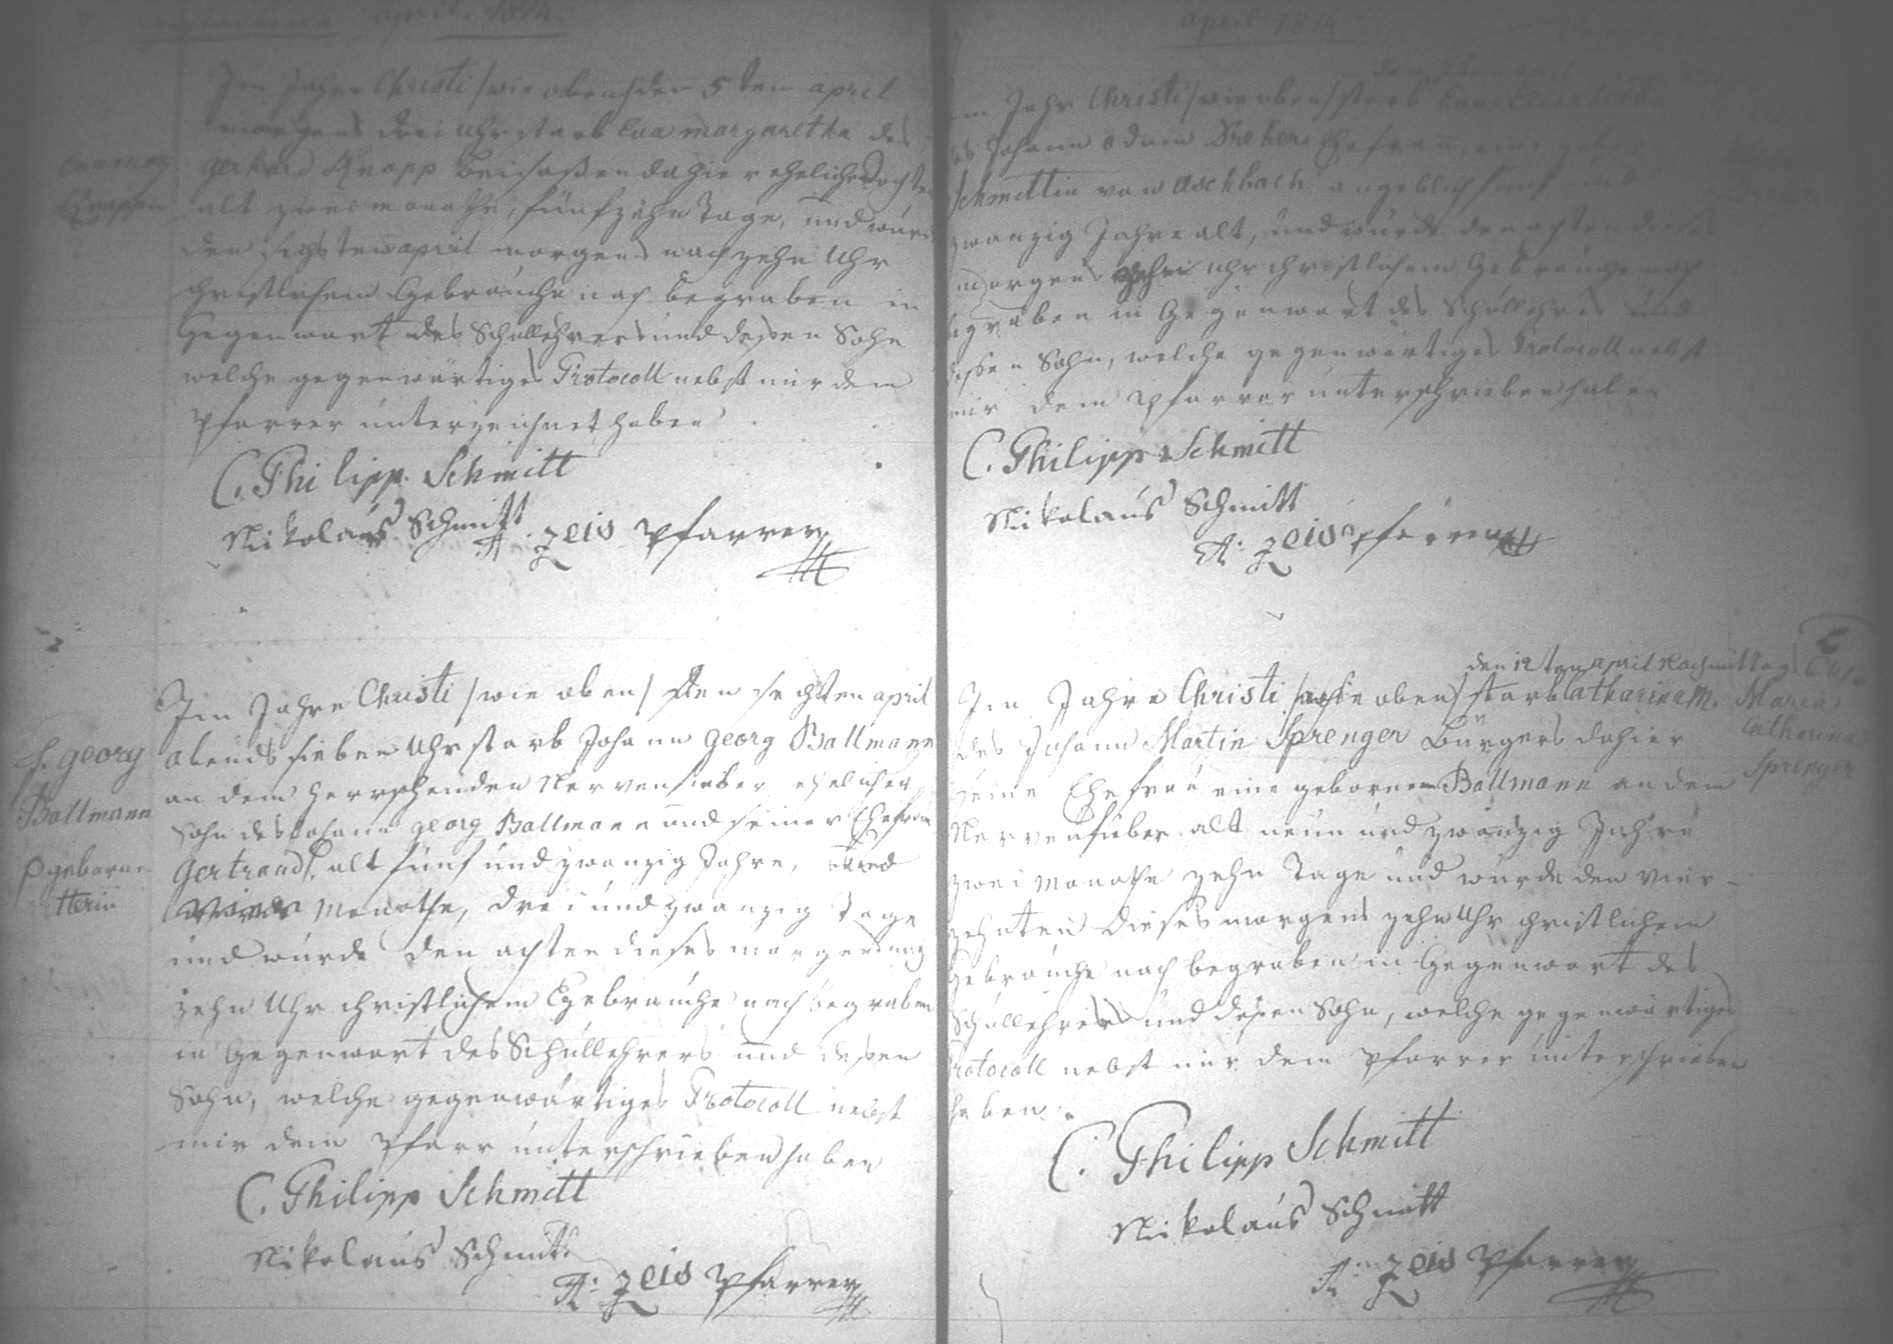 april. 1814.
Im Jahre Christi /wie oben/ den 5ten april
morgens drei Uhr starb Eva margaretha des
gerhard Knapp Beisaßen dahier eheliche Tochter
alt zwei monathe, fünfzehn Tage, und wurde
den sechsten april morgens nach zehn Uhr
christlichem Gebrauche nach begraben in
Gegenwart des Schullehrers und deßen Sohn
welche gegenwärtiges Protocoll nebst mir dem
Pfarrer unterzeichnet haben
C. Philipp Schmitt
Nikolaus Schmitt
A: Zeis Pfarrer
J. georg
Ballmann
geborne
Im Jahre Christi /wie oben/ den sechsten april
abends sieben Uhr starb Johann georg Ballmann
an dem herrschenden Nervenfieber ehelicher
Sohn des Johann georg Ballmann und seiner Ehefrau
Gertraud, alt fünf und zwanzig Jahre, und
Monathe, drei und zwanzig Tage
und wurde den achten dieses morgens nach
zehn Uhr christlichem Gebrauche nach begraben
in Gegenwart des Schullehrers und deßen
Sohn, welche gegenwärtiges Protocoll nebst
mir dem Pfarr unterschrieben haben
C. Philipp Schmitt
Nikolaus Schmitt
A: Zeis Pfarrer
april 1814
Im Jahr Christi /wie oben/ starb
des Johann Adam Ehefrau, eine geborne
Schmittin von Aschbach angeblich fünf und
zwanzig Jahre alt, und wurde den achten dieses
morgens zehn Uhr christlichem Gebrauche nach
begraben in Gegenwart des Schullehrers und
deßen Sohn, welche gegenwärtiges Protocoll nebst
mir dem Pfarrer unterschrieben haben
C. Philipp Schmitt
Nikolaus Schmitt
A: Zeis Pfarrer
den 12ten april Nachmittag
Im Jahre Christi /wie oben/ starb Catharina M.
des Johann Martin Sprenger Bürgers dahier
seine Ehefrau eine geborne Ballmann an dem
Nervenfieber alt neun und zwanzig Jahre
zwei Monathe zehn Tage und wurde den vier-
zehnten dieses morgens zehn Uhr christlichem
Gebrauche nach begraben in Gegenwart des
Schullehrers und deßen Sohn, welche gegenwärtiges
Protocoll nebst mir dem Pfarrer unterschrieben
haben.
Maria
Catharina
Sprenger
C. Philipp Schmitt
Nikolaus Schmitt
A: Zeis Pfarrer